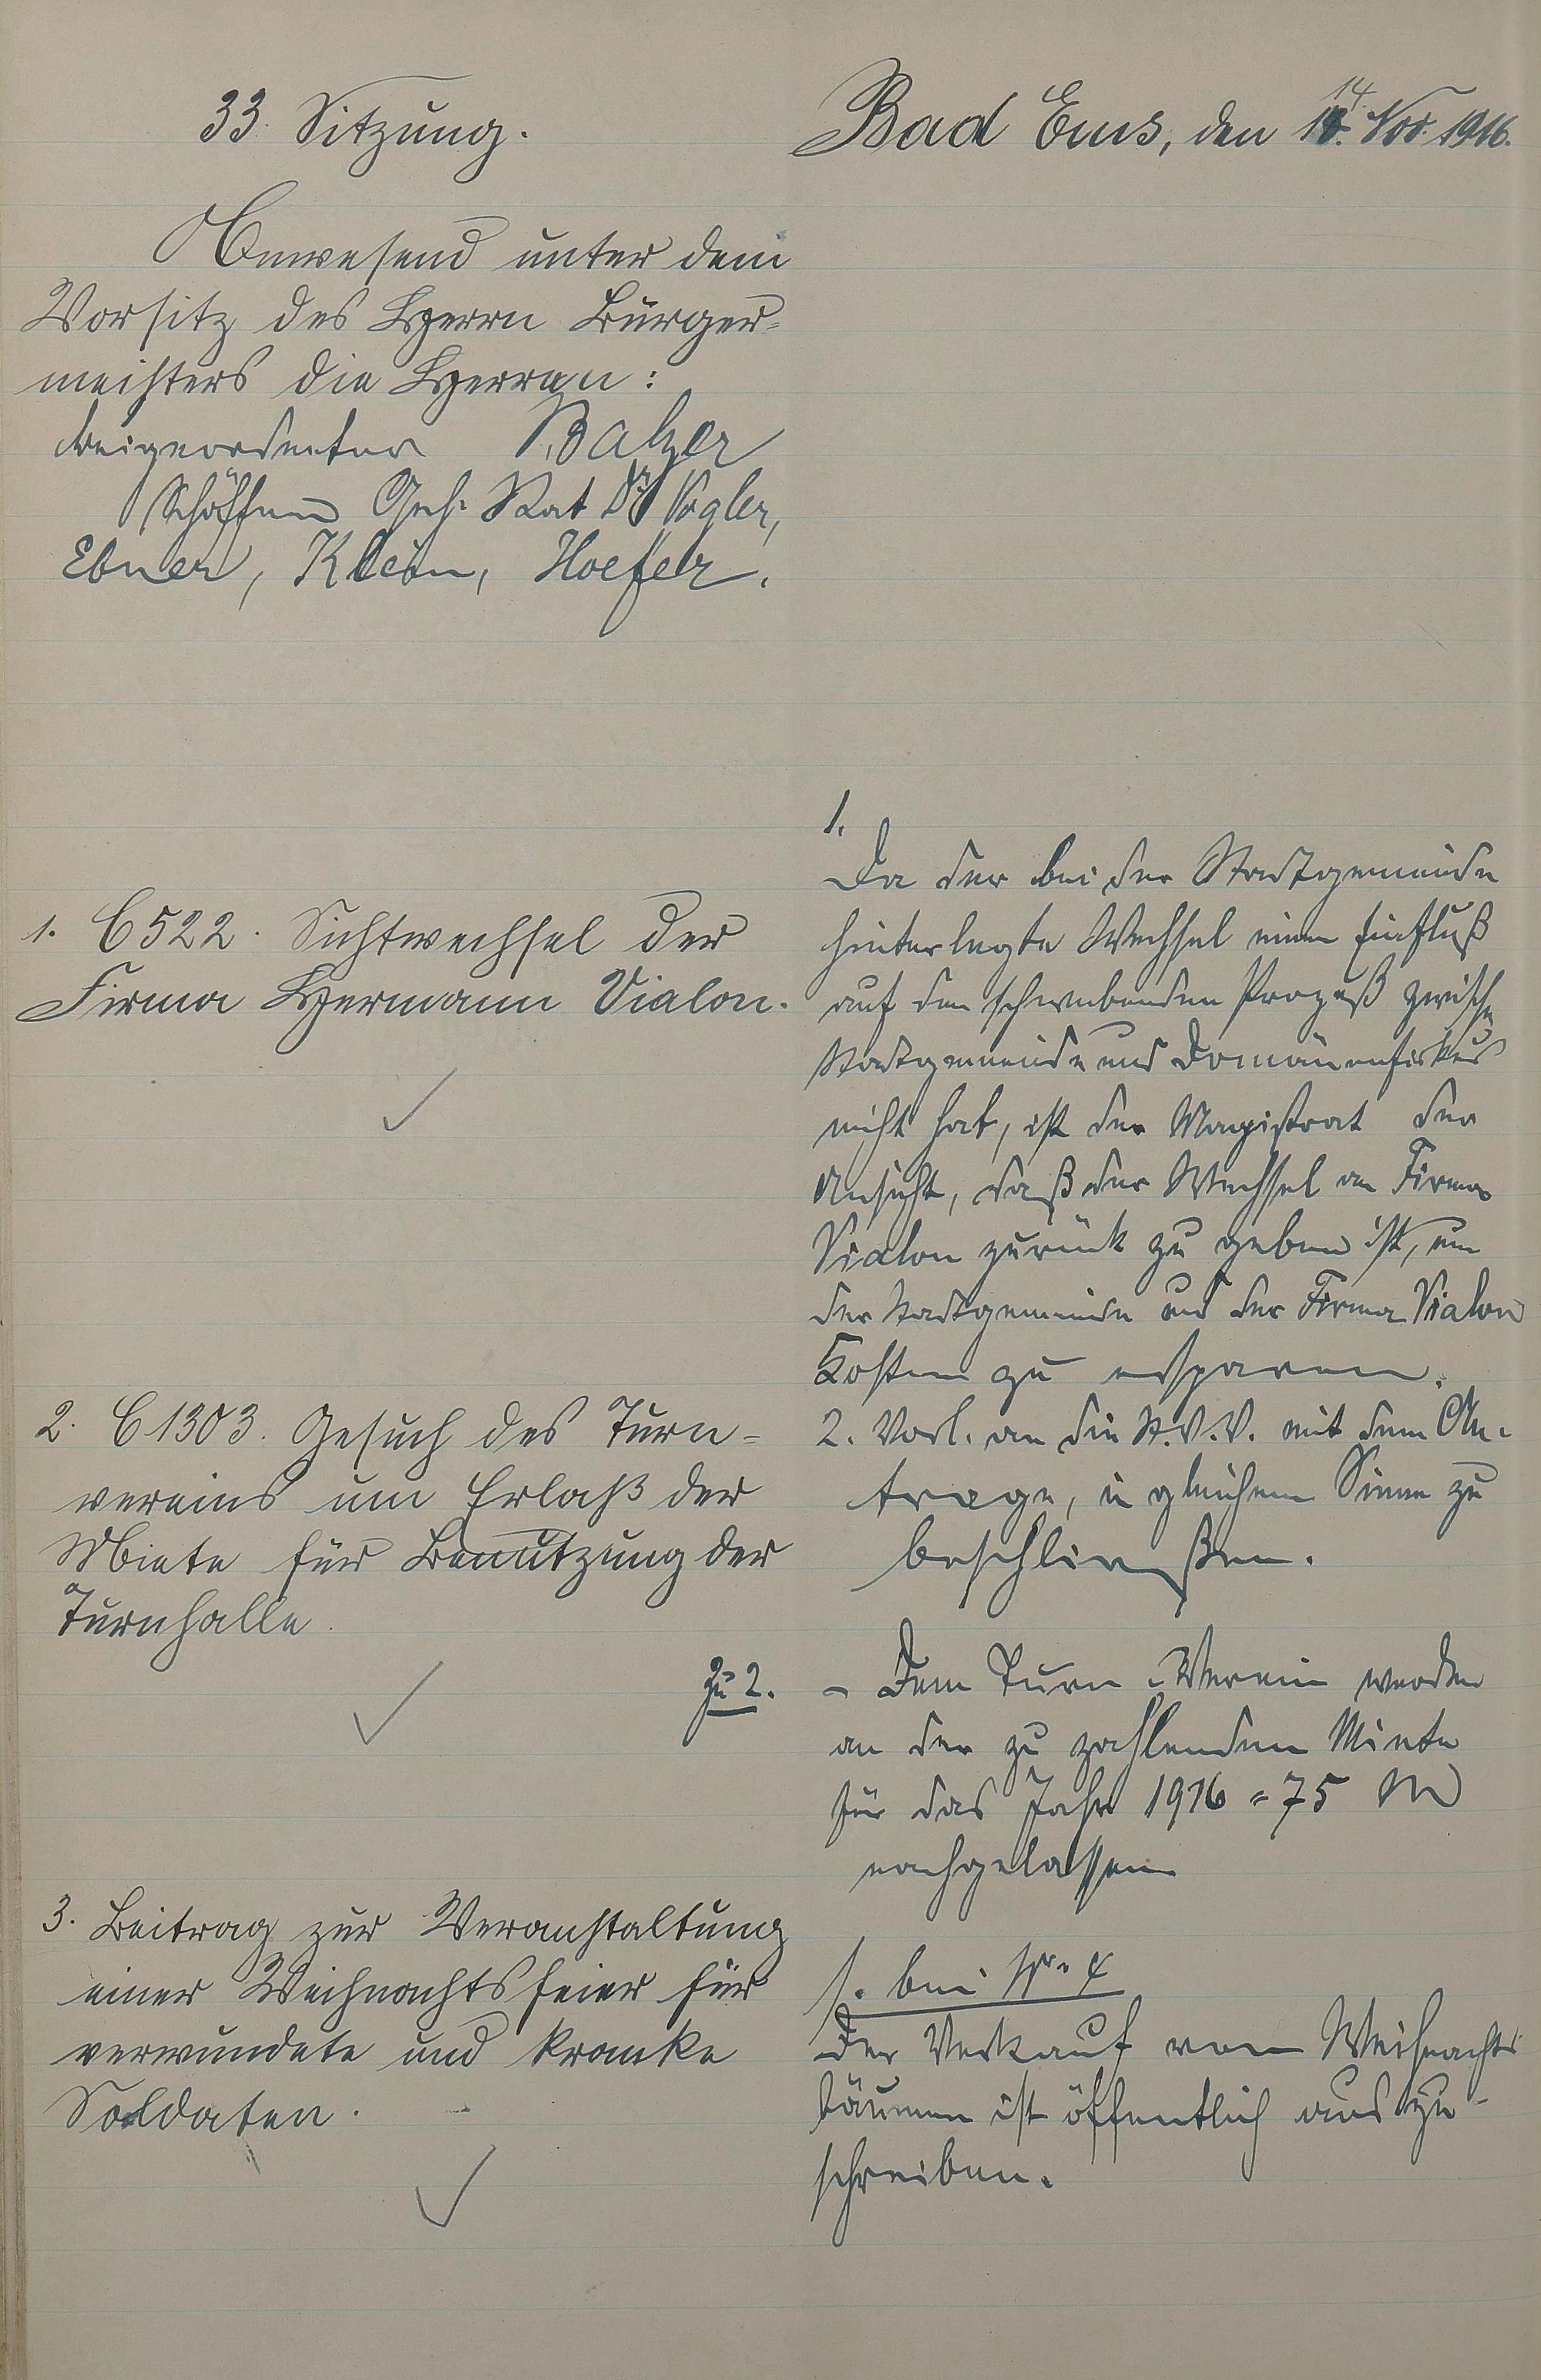 33. Sitzung.
Bad Ems, den 14. Nov. 1916.
Anwesend unter dem
Vorsitz des Herrn Bürger-
meisters die Herren:
Beigeordneter Balzer
Schöffen Geh. Rat Dr Vogler,
Ebner, Klein, Hoefer.
1. C 522. Sichtwechsel der
Firma Hermann Vialon.
2. C 1303. Gesuch des Turn-
vereins um Erlaß der
Miete für Benutzung der
Turnhalle.
3. Beitrag zur Veranstaltung
einer Weihnachtsfeier für
verwundete und kranke
Soldaten.
1.
Da der bei der Stadtgemeinde
hinterlegte Wechsel einen Einfluß
auf den schwebenden Prozeß zwischen
Stadtgemeinde und Domänenfiskus
nicht hat, ist der Magistrat der
Ansicht, daß der Wechsel an Firma
Vialon zurück zu geben ist, um
der Stadtgemeinde und der Firma Vialon
Kosten zu ersparen.
2. Vorl. an die St.V.V. mit dem An-
trage, in gleichem Sinne zu
beschließen.
Zu 2. - Dem Turn-Verein werden
an der zu zahlenden Miete
für das Jahr 1916 = 75 M
nachgelassen
1. bei Nr. 4
Der Verkauf von Weihnachts
bäumen ist öffentlich aus zu-
schreiben.